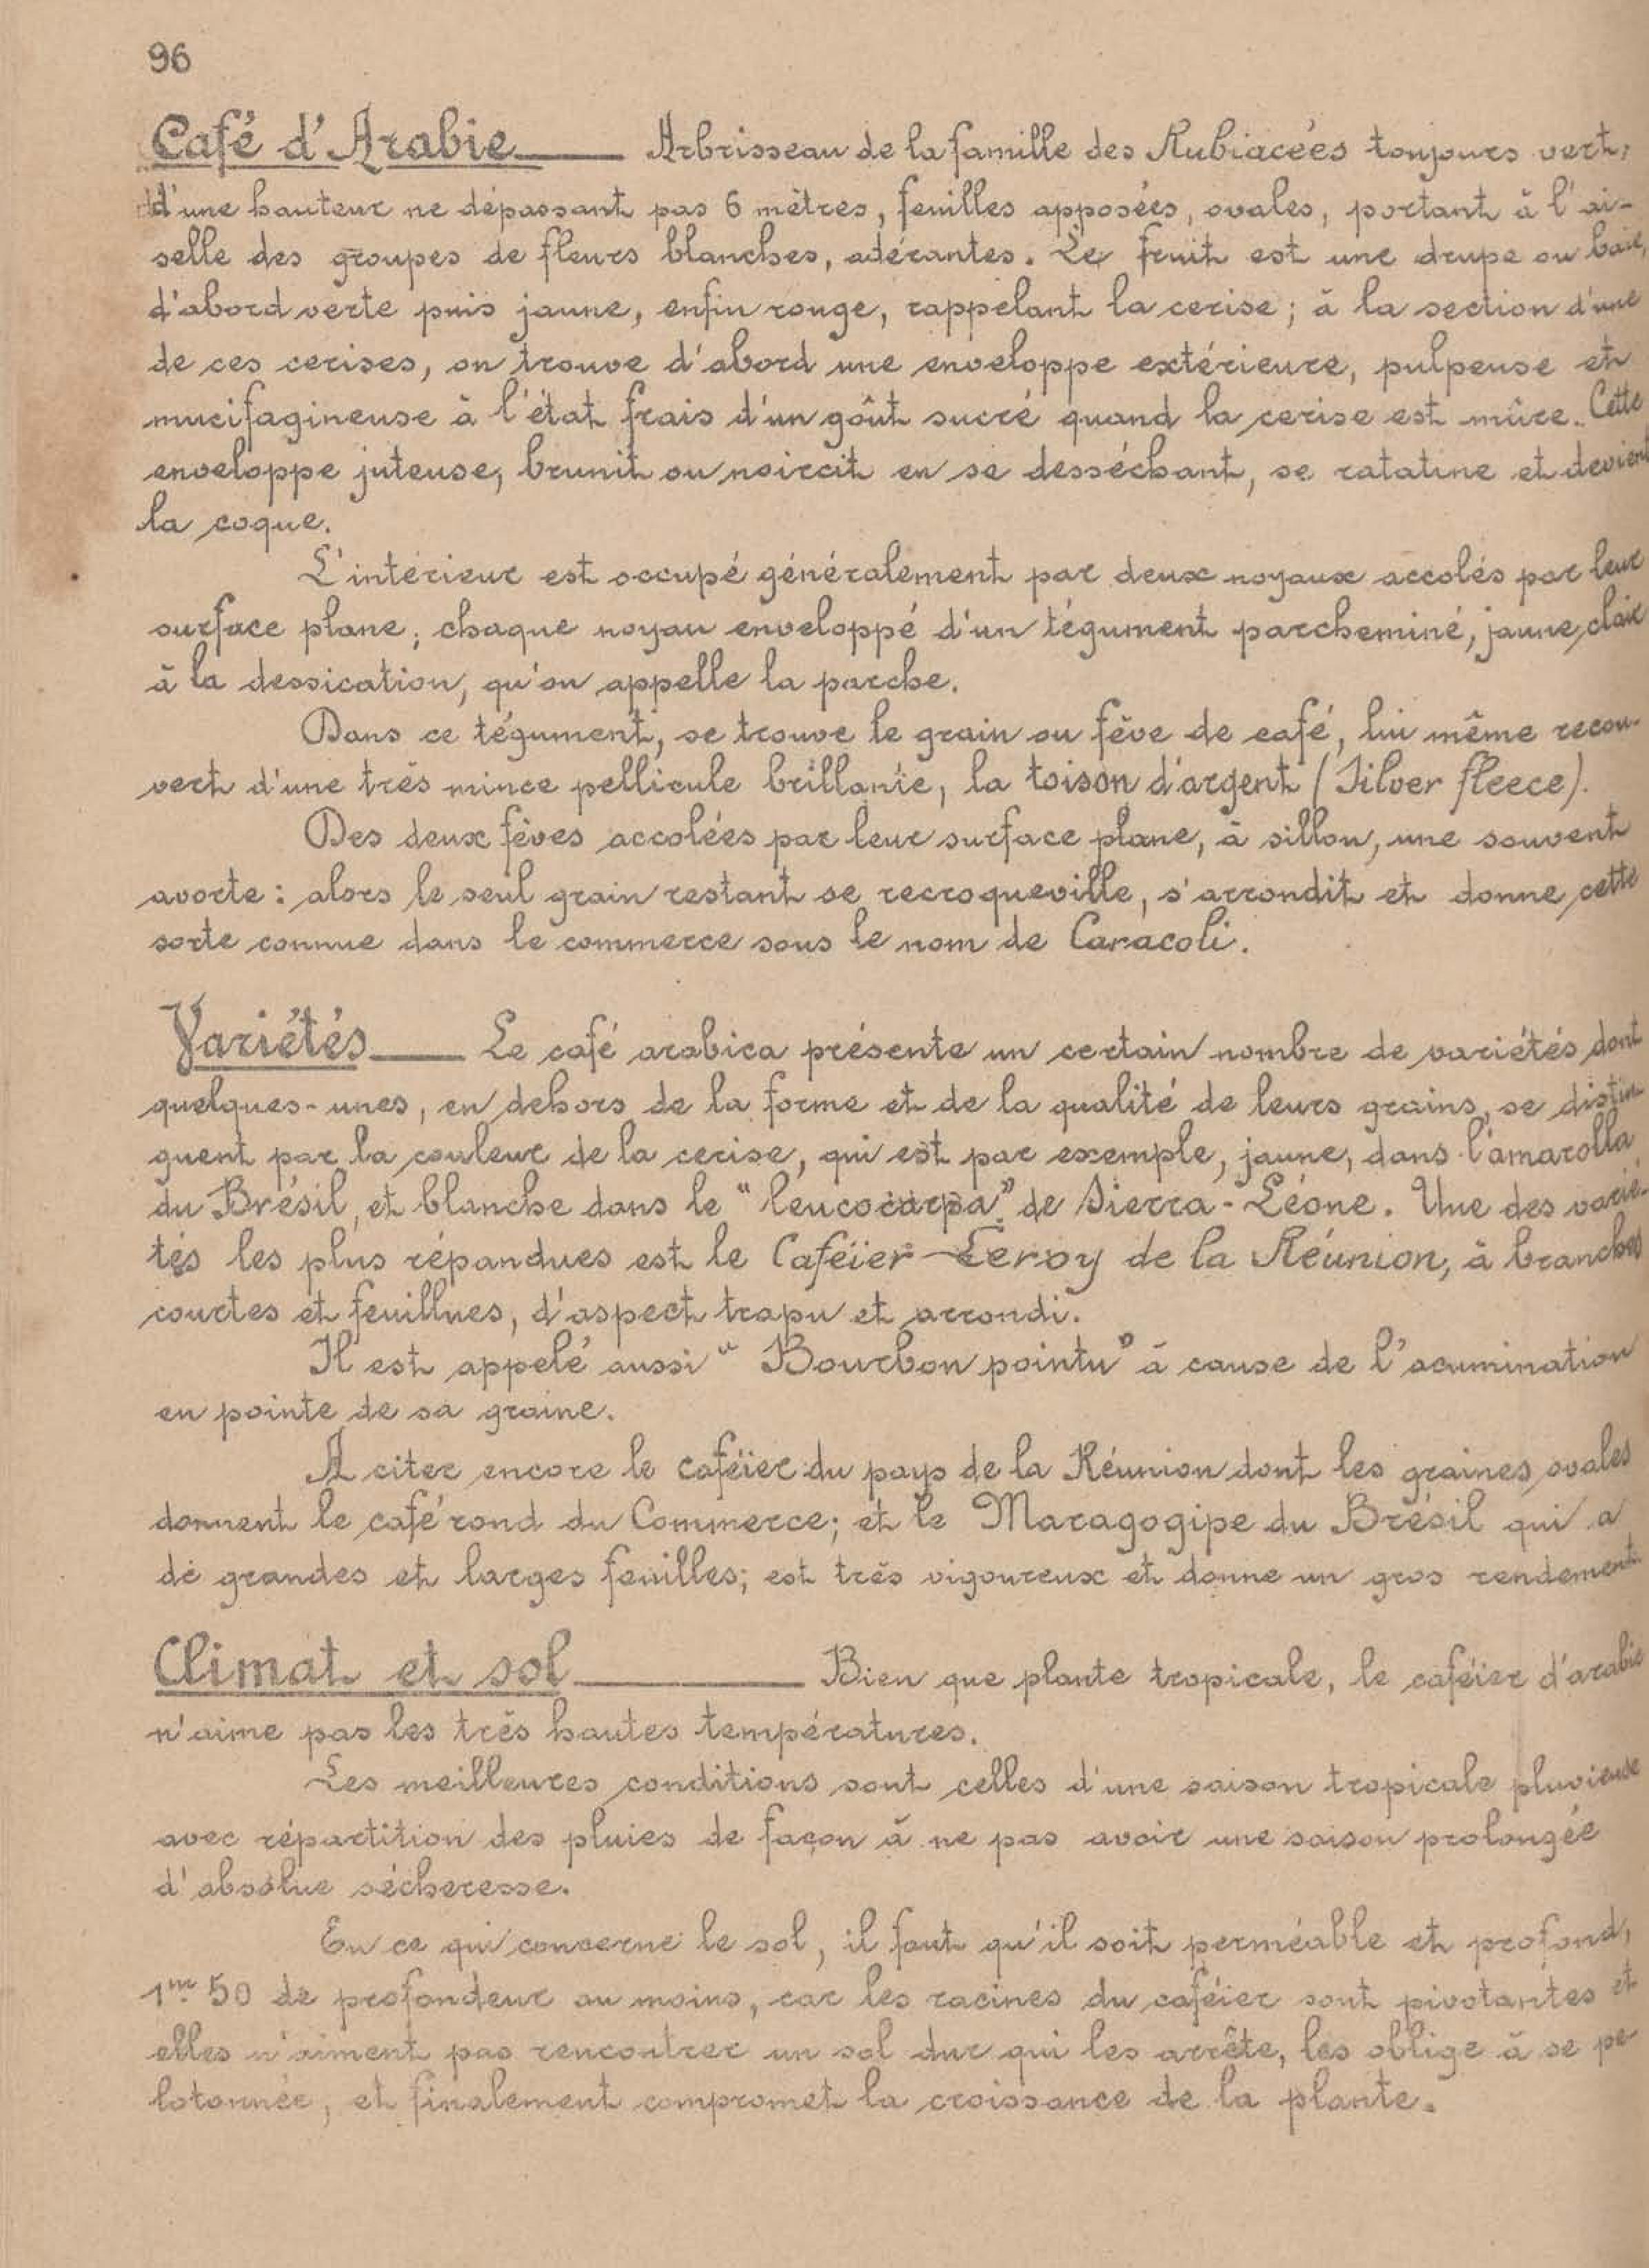 96
Café d'Arabie Arbrisseau de la famille des Rubiacées toujours vert,
d'une hauteur ne dépassant pas 6 mètres, feuilles apposées, ovales, portant à l'ai-
selle des groupes de fleurs blanches, adérantes. Le fruit est une drupe ou baie,
d'abord verte puis jaune, enfin rouge, rappelant la cerise; à la section d'une
de ces cerises, on trouve d'abord une enveloppe extérieure, pulpeuse et
mucifagineuse à l'état frais d'un goût sucré quand la cerise est mûre. Cette
enveloppe juteuse, brunit ou noircit en se desséchant, se ratatine et devient
la coque.
L'intérieur est occupé généralement par deux noyaux accolés par leur
surface plane; chaque noyau enveloppé d'un tégument parcheminé, jaune clair
à la dessication, qu'on appelle la parche.
Dans ce tégument, se trouve le grain ou fève de café, lui même recou-
vert d'une très mince pellicule brillante, la toison d'argent (Silver fleece).
Des deux fèves accolées par leur surface plane, à sillon, une souvent
avorte: alors le seul grain restant se recroqueville, s'arrondit et donne cette
sorte connue dans le commerce sous le nom de Caracoli.
Variétés Le café arabica présente un certain nombre de variétés dont
quelques-unes, en dehors de la forme et de la qualité de leurs grains, se distin-
guent par la couleur de la cerise, qui est par exemple, jaune, dans l'amarolla
du Brésil, et blanche dans le "leucocarpa" de Sierra-Léone. Une des varié-
tés les plus répandues est le Caféier Leroy de la Réunion, à branches
courtes et feuillues, d'aspect trapu et arrondi.
Il est appelé aussi "Bourbon pointu" à cause de l'acumination
en pointe de sa graine.
A citer encore le caféier du pays de la Réunion dont les graines ovales
donnent le café rond du Commerce; et le Maragogipe du Brésil qui a
de grandes et larges feuilles; est très vigoureux et donne un gros rendement
Climat et sol Bien que plante tropicale, le caféier d'arabie
n'aime pas les très hautes températures.
Les meilleures conditions sont celles d'une saison tropicale pluvieuse
avec répartition des pluies de façon à ne pas avoir une saison prolongée
d'absolue sécheresse.
En ce qui concerne le sol, il faut qu'il soit perméable et profond,
1m 50 de profondeur au moins, car les racines du caféier sont pivotantes et
elles n'aiment pas rencontrer un sol dur qui les arrête, les oblige à se pe
lotonnée, et finalement compromet la croissance de la plante.